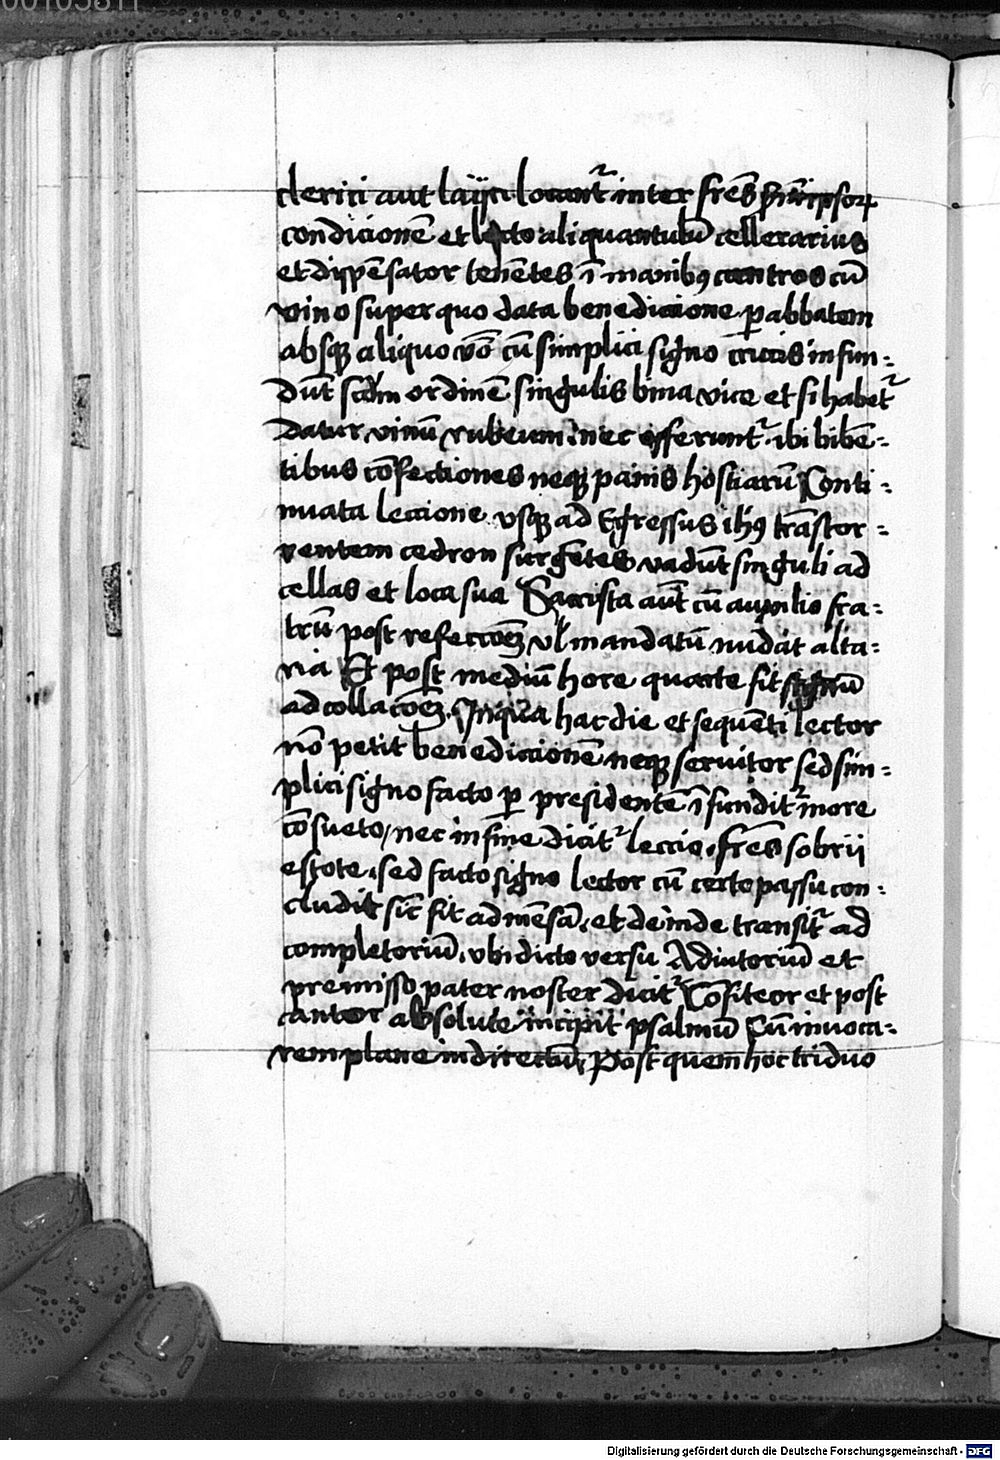 clerici aut laÿci locant᷑ inter fr̄es ipsoꝝ
condicionē et lecto aliquantulū cellerarius
et dispēsator tenētes ī manibꝰ cantros cū
vino super quo data benediccione ꝑ abbatem
absqꝫ aliquo v̄o cū simplici signo crucis infun-
dūt scd̄m ordinē singulis bina vice et si habet᷑
datur vinū rubeum nec offerunt᷑ ibi bibē-
tibus cōfectiones neqꝫ panis hostiarū Conti-
nuata leccione vsqꝫ ad Egressus ih̄s trās tor-
rentem cedron surgētes vadūt singuli ad
cellas et loca sua Sacrista aūt cū auxilio fra-
trū post refeccōeꝫ vl̄ mandatū nudāt alta-
ria Et post mediū hore quarte fit signū
ad collacōeꝫ. In qua hac die et sequēti lector
nō petit benediccionē neqꝫ seruitor sed sim-
plici signo facto ꝑ presidentē īfundit᷑ more
cōsueto, nec in fine dicit᷑ leccio, fr̄es sobrii
estote, sed facto signo lector cū certo passu con-
cludit sic̄ fit ad mēsā, et deinde transit᷑ ad
completoriū, vbi dicto versu Adiutoriū et
premisso pater noster dicit᷑ Cōfiteor et post
cantor absolute incipit psalmū Cū inuoca-
rem plane in directū, Post quem hoc triduo
Digitalisierung gefördert durch die Deutsche Forschungsgemeinschaft - DFG